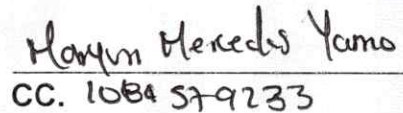 Maryun Mercedes Yamo
CC. 1084 579233